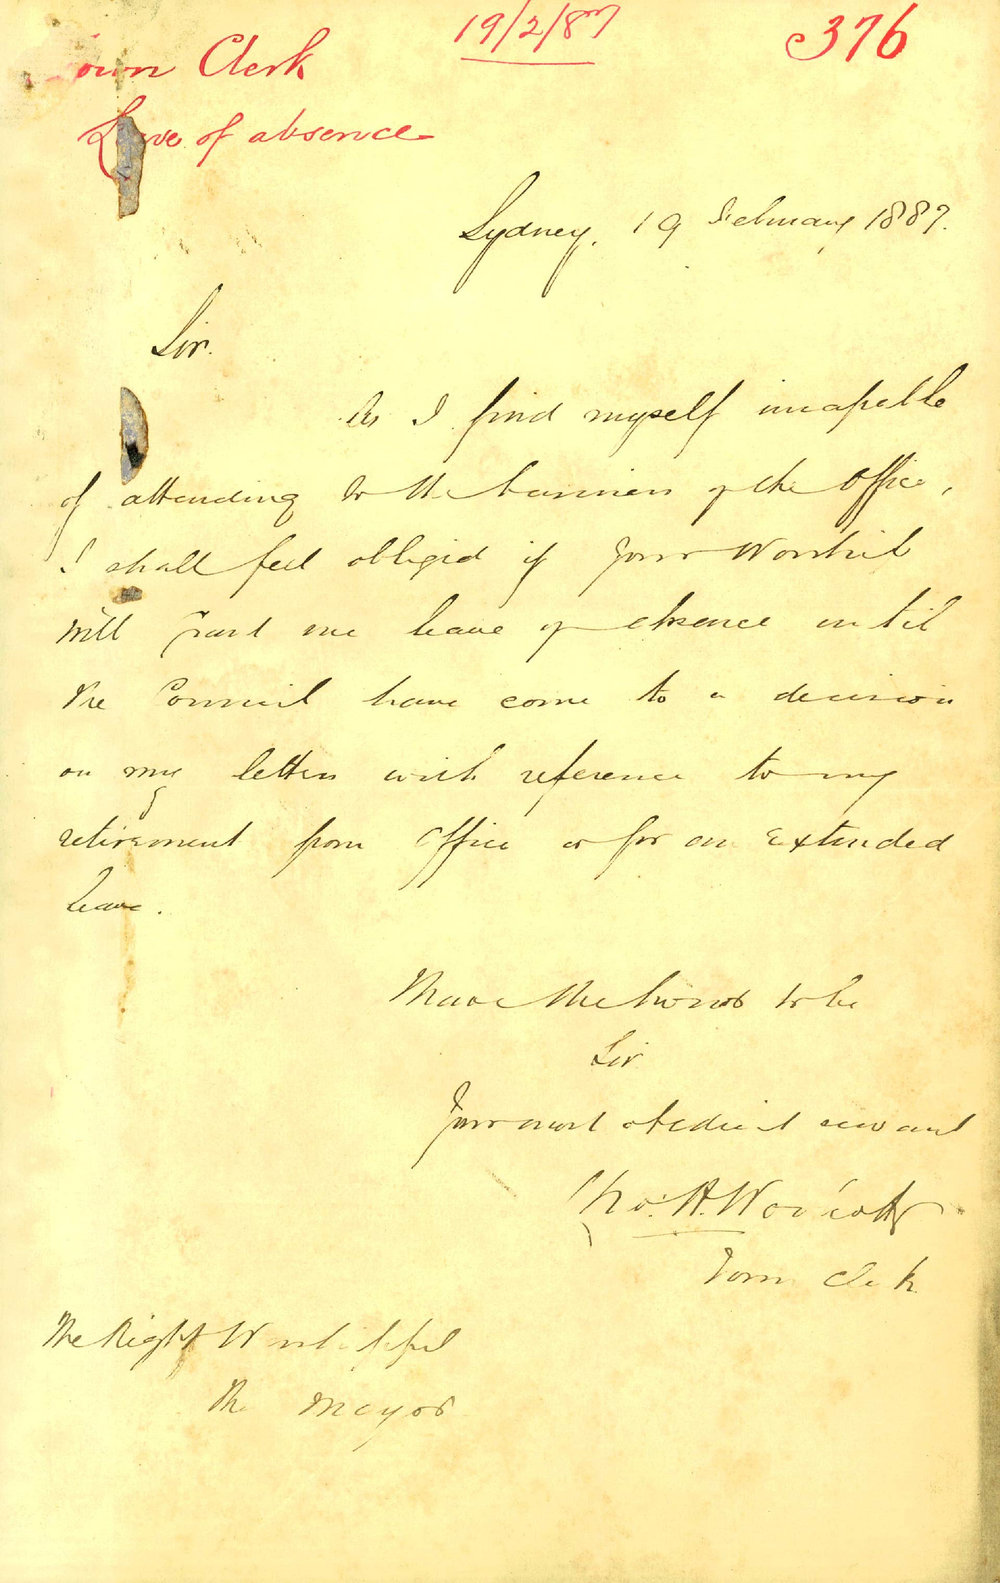 19/2/87
376
Town Clerk
Leave of absence
Sydney, 19 February 1887.
Sir.
As I find myself incapable
of attending to the business of the Office,
I shall feel obliged if Your Worship
will grant me leave of absence until
the Council have come to a decision
on my letter with reference to my
retirement from Office or for an extended
leave.
I have the honor to be
Sir
Your most obedient servant
Chas. H. Woolcott
Town Clerk
The Right Worshipful
The Mayor